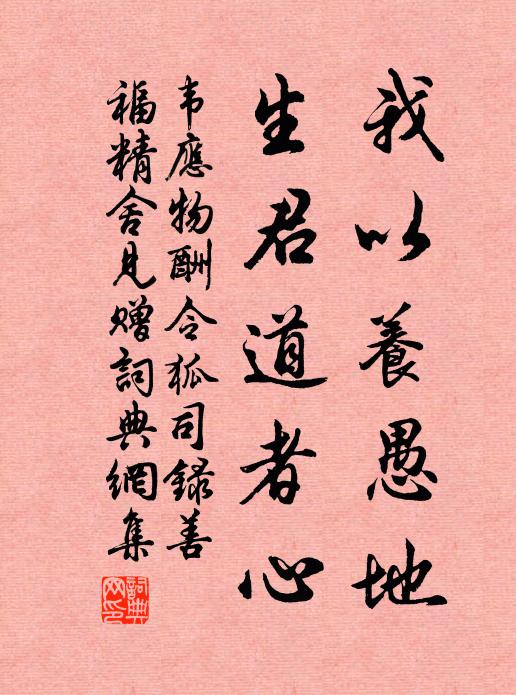 我以養愚地
生君道者心
韦應物酬令狐司録善
福精舍見贈詞典網集
詞典
网印